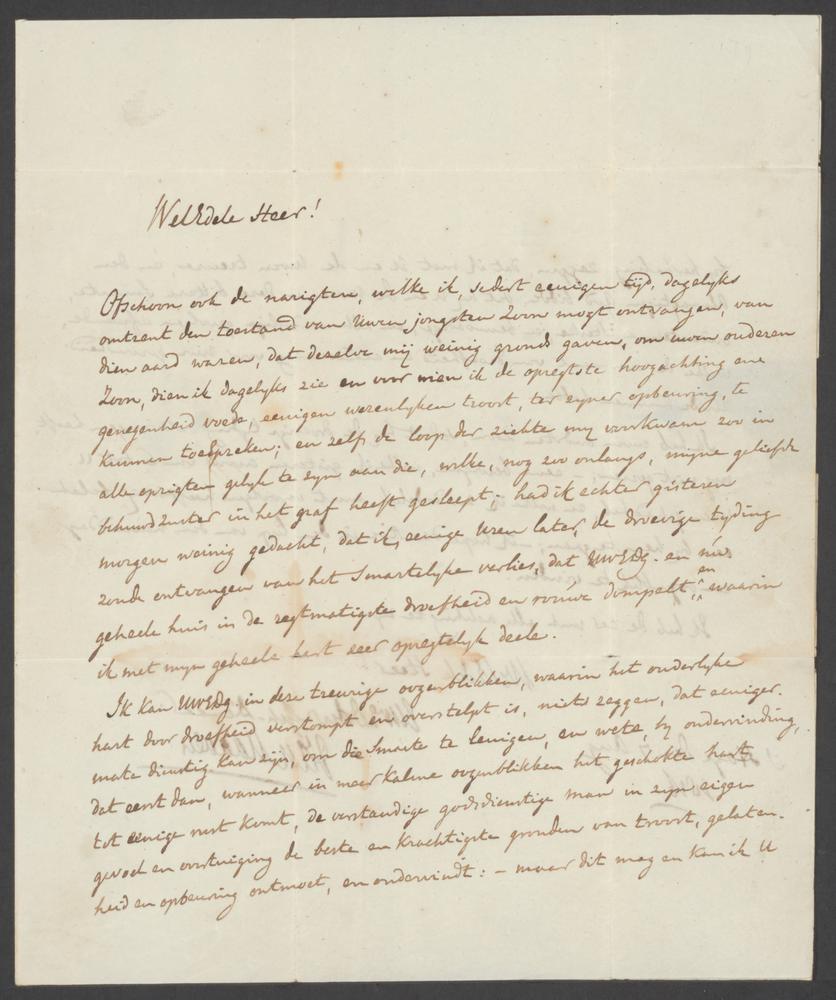 WelEdele Heer!
Ofschoon ook de narigten, welke ik, sedert eenigen tijd, dagelyks
omtrent den toestand van Uwen jongsten Zoon mogt ontvangen, van
dien aard waren, dat dezelve mij weinig gronds gaven, om uwen ouderen
Zoon, dien ik dagelyks zie en voor wien ik de opregtste hoogachting en
genegenheid voede, eenigen wezenlyken troost, ter zyner opbeuring, te
kunnen toespreken; en zelfs de loop der ziekte my voorkwam zoo in
alle opzigten gelyk te zyn aan die, welke, nog zoo onlangs, mijne geliefde
behuwdzuster in het graf heeft gesleept; had ik echter gisteren
morgen weinig gedacht, dat ik, eenige uren later, de droevige tyding
zoude ontvangen van het Smartelyke verlies, dat UWEDg. en
geheele huis in de regtmatigste droefheid en rouwe dompelt, en waarin
ik met myn geheele hart zeer opregtelyk deele.
Ik kan UWEDg. in deze treurige oogenblikken, waarin het ouderlyke
hart door droefheid verstompt en overstelpt is, niets zeggen, dat eeniger
mate dienstig kan zijn, om die Smarte te lenigen, en wete, by ondervinding,
dat eerst dan, wanneer in meer kalme oogenblikken het geschokte hart
tot eenige rust komt, de verstandige godsdienstige man in zyn eigen
gevoel en overtuiging de beste en krachtigste gronden van troost, gelaten-
heid en opbeuring ontmoet, en ondervindt: – maar dit mag en kan ik U